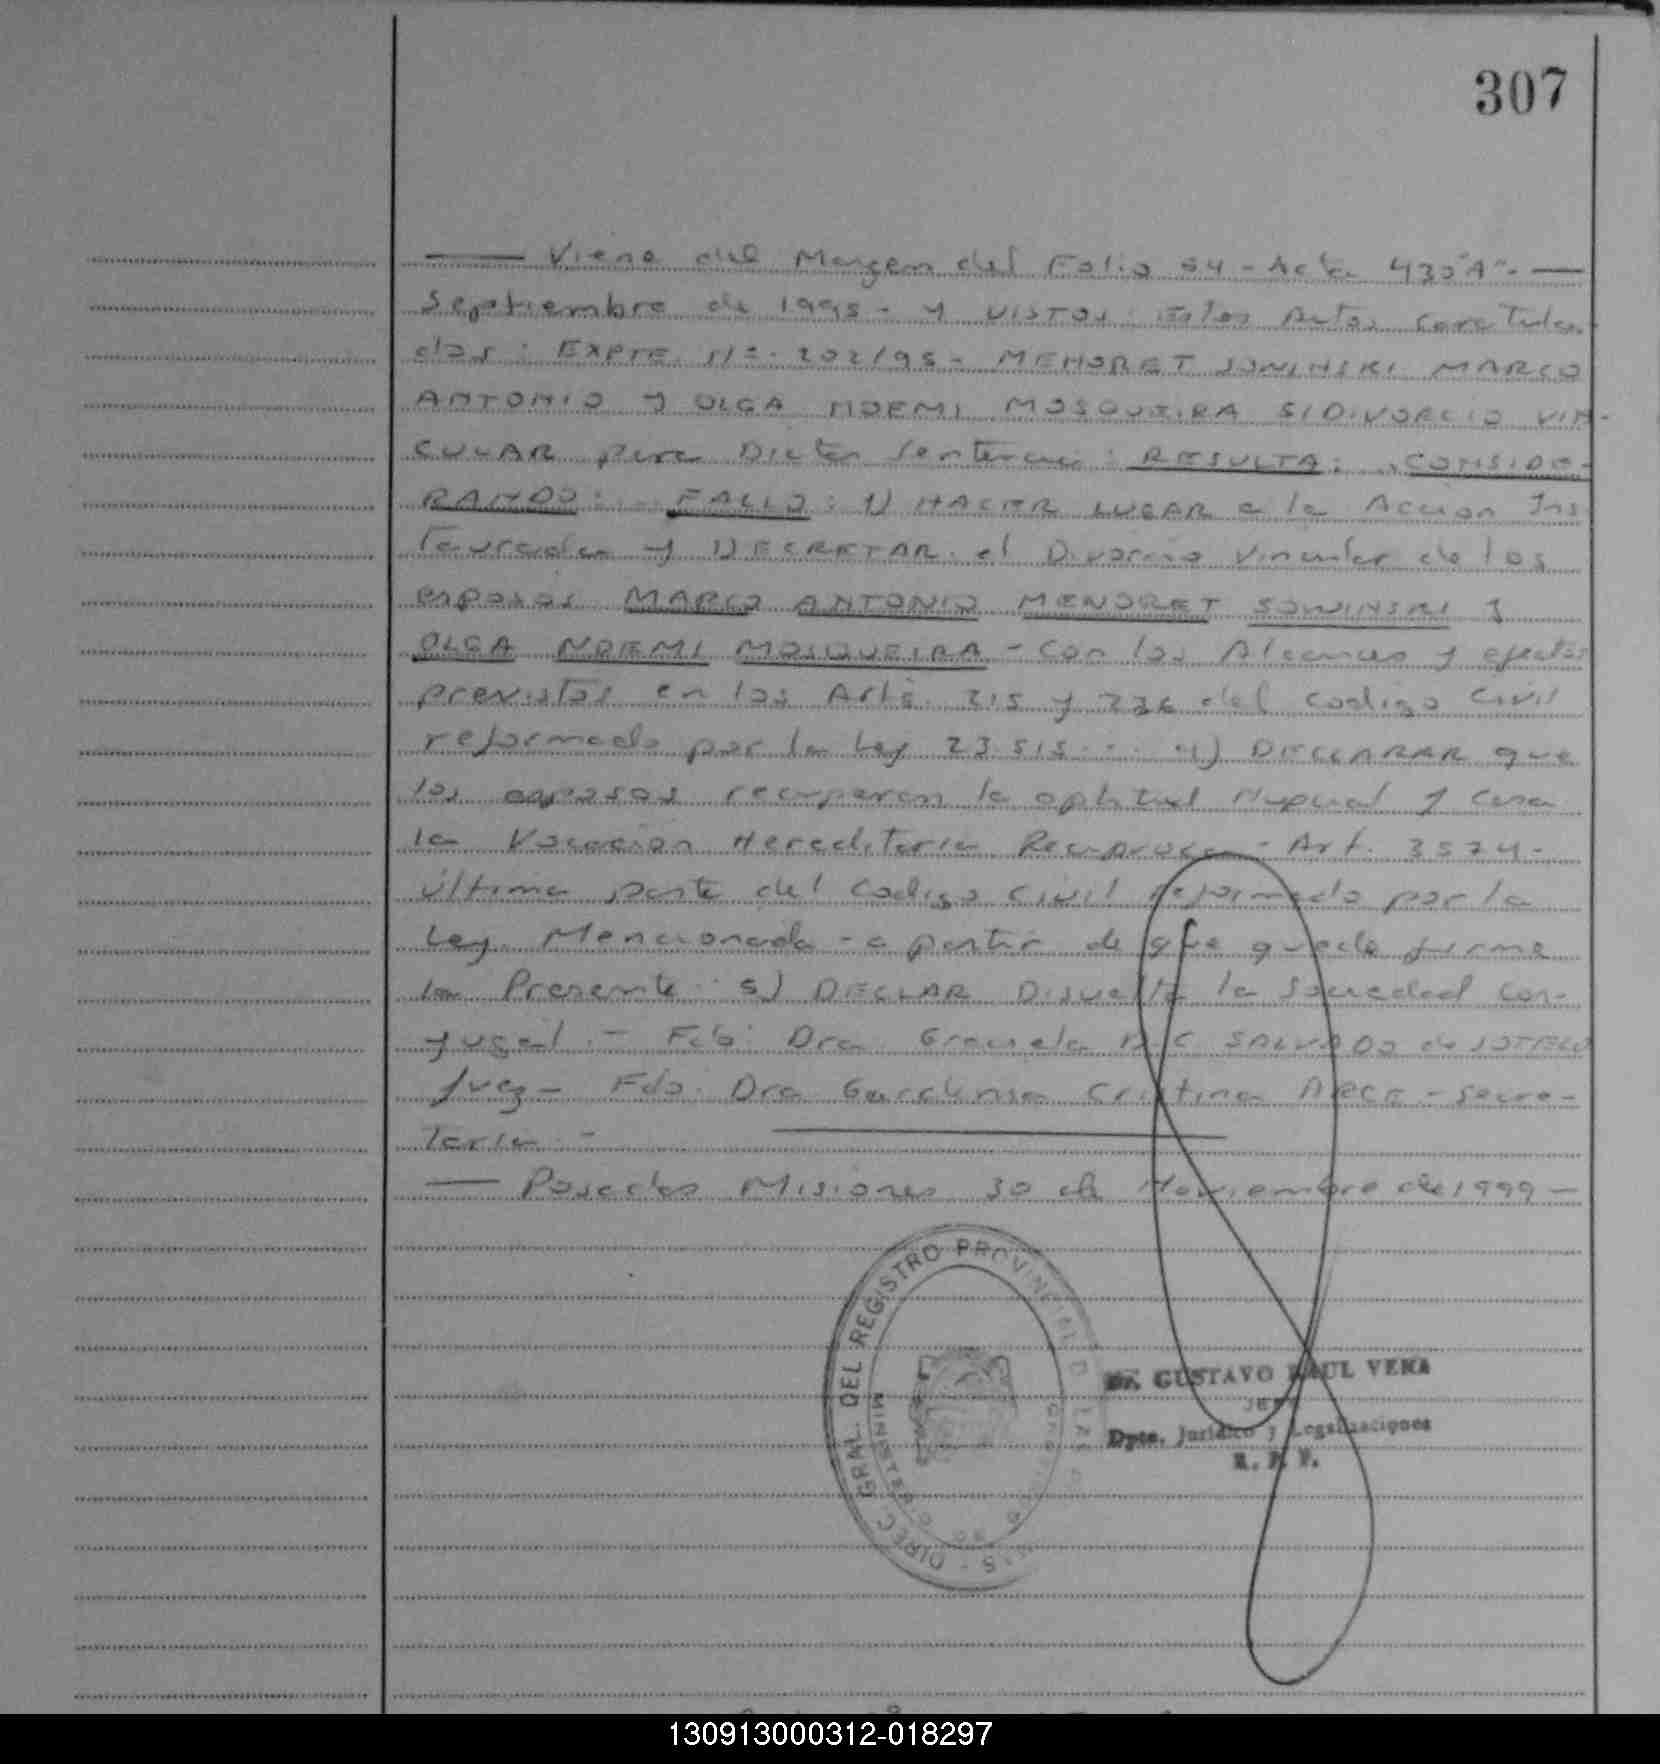 307
Viene del Margen del Folio 64 - Acta 430 "A" -
Septiembre de 1995 - Y VISTOS: Estos Autos Caratula-
dos: EXPTE. Nº. 202/95 - MENORET SOWINSKI MARCO
ANTONIO Y OLGA NOEMI MOSQUEIRA S/DIVORCIO VIN-
CULAR para Dictar Sentencia: RESULTA: ... CONSIDE-
RANDO: ... FALLO: 1) HACER LUGAR a la Acción Ins-
taurada y DECRETAR el Divorcio Vincular de los
esposos MARCO ANTONIO MENORET SOWINSKI y
OLGA NOEMI MOSQUEIRA - Con los Alcances y efectos
previstos en los Arts. 215 y 236 del Codigo Civil
reformado por la Ley 23.515 ... 4) DECLARAR que
los esposos recuperan la aptitud Nupcial y cesa
la Vocación Hereditaria Reciproca - Art. 3574 -
última parte del Codigo Civil reformado por la
Ley Mencionada - a partir de que quede firme
la Presente. 5) DECLAR Disuelta la Sociedad Con-
yugal. - Fdo: Dra. Graciela SALVADO de SOTELO
Juez - Fdo. Dra Cristina ARCE - Secre-
taria. -
Posadas Misiones 30 de Noviembre de 1999 -
DIREC. GRAL. DEL REGISTRO PROVINCIAL DE LAS
MINISTERIO DE GOBIERNO
Dr. GUSTAVO RAUL VERA
JEFE
Dpto. Jurídico y Legalizaciones
R. P. P.
130913000312-018297